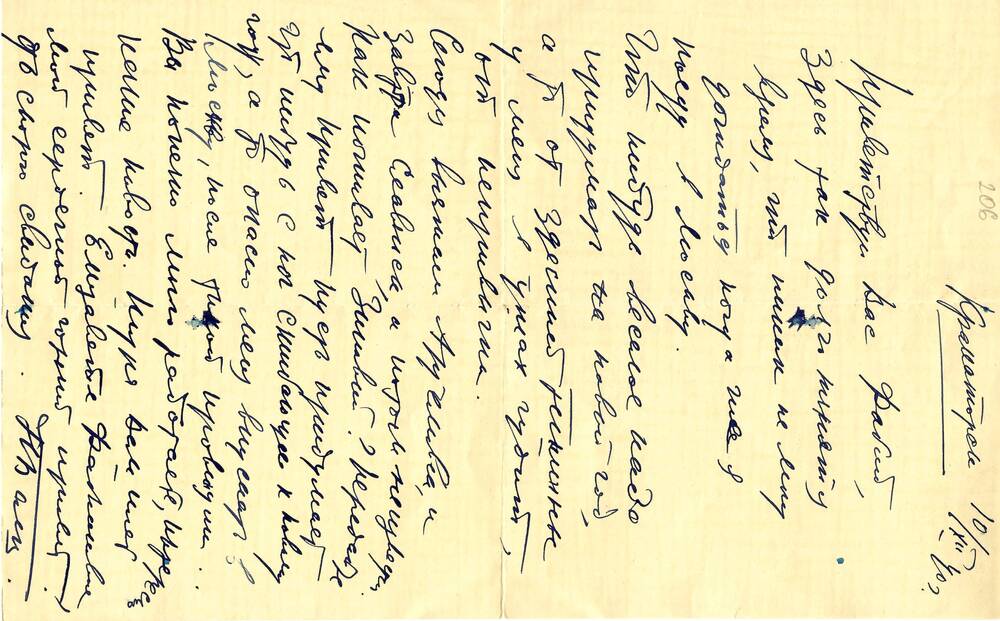 206
Краматорск 10/XII 40г.
Приветствую Вас Фабий,
Здесь так долго тянется
время, что никак не могу
дождаться когда же я
поеду в Москву.
Что нибудь веселое надо
придумать на новый год,
а то от здешней тишины
у меня в ушах гудит,
от непривычки.
Сегодня выезжаем и
завтра Славянск, а потом неизвестн.
Как поживает Зиновий? Передайте
ему привет пусть придумает
что нибудь с ног сшибающее к новому
году, а то опасно меня впускать в
Москву, после тихой провинции..
Вы конечно много работаете, интересно
какие новости. Вам шлет
привет. Елизавете
мой сердечный горячий привет!
До скорого свидания.